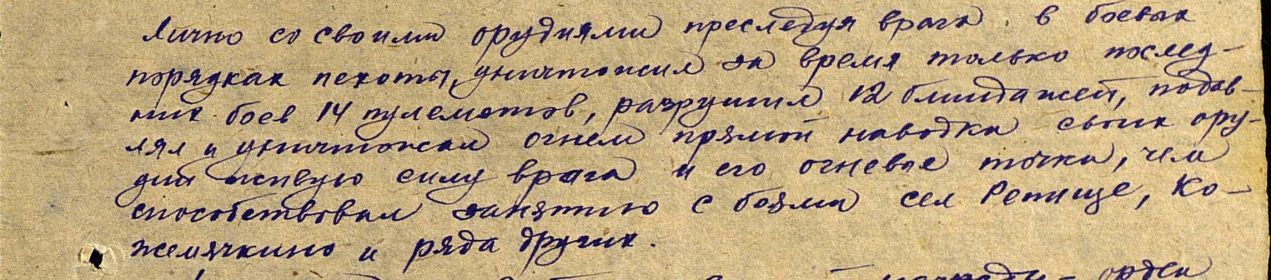 Лично со своими орудиями преследуя врага в боевых
порядках пехоты, уничтожил за время только послед-
них боев 14 пулеметов, разрушил 12 блиндажей, подав-
лял и уничтожал огнем прямой наводки своих ору-
дий живую силу врага и его огневые точки, чем
способствовал занятию с боями сел Репище, Ко-
жемячкино и ряда других.
орден